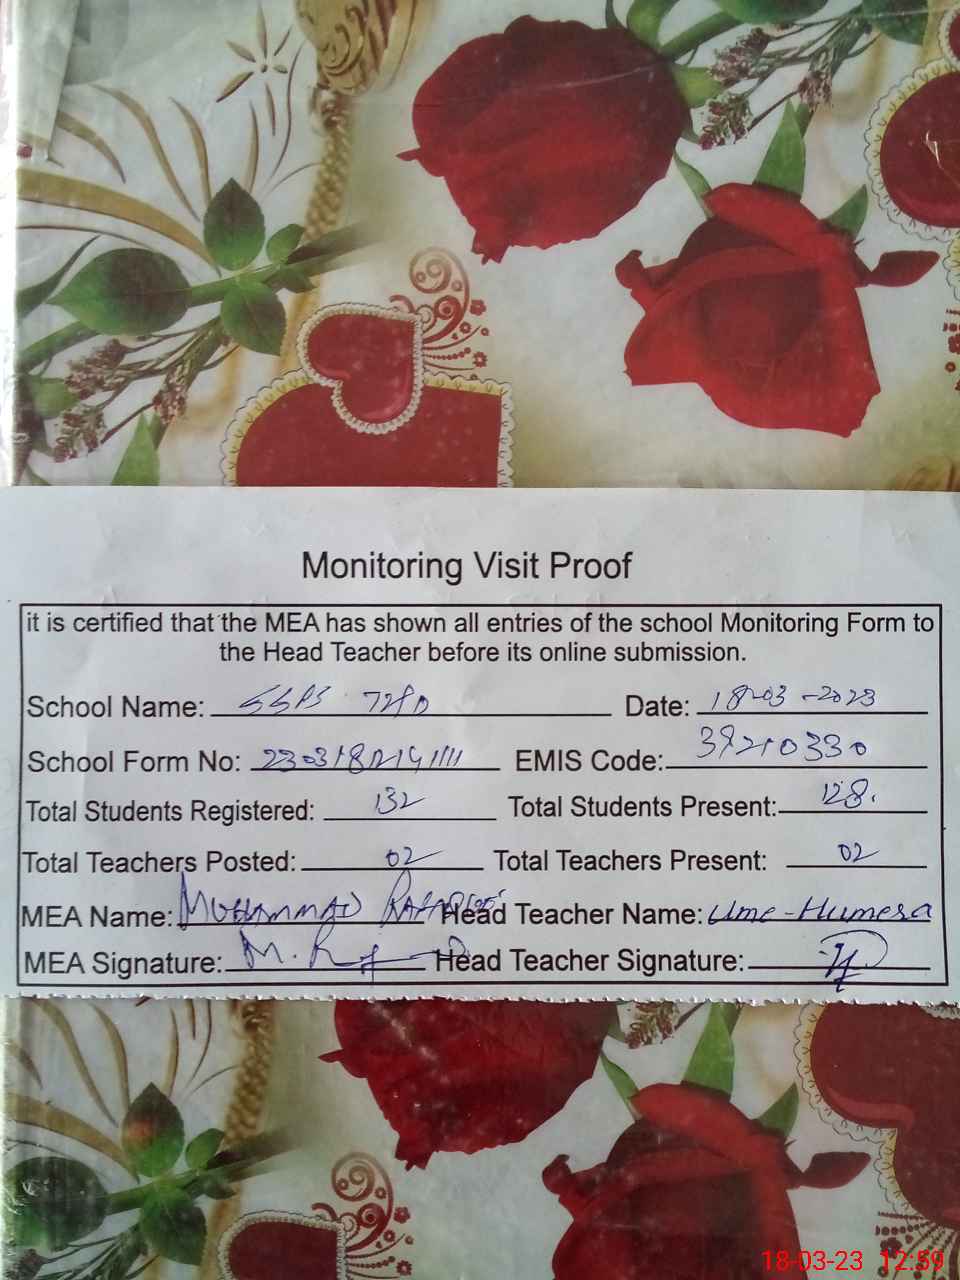 Monitoring Visit Proof
it is certified that the MEA has shown all entries of the school Monitoring Form to
the Head Teacher before its online submission.
School Name: Date: 18-03-2023
School Form No: EMIS Code: 39210330
Total Students Registered: 132 Total Students Present: 128.
Total Teachers Posted: 02 Total Teachers Present: 02
MEA Name: MUHAMMAD Head Teacher Name: Ume-Humera
MEA Signature: Head Teacher Signature:
18-03-23 12:59